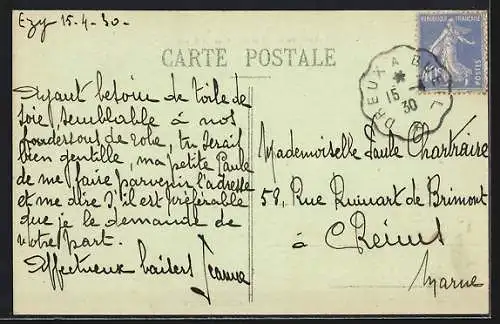 Ezy 15-4-30-
CARTE POSTALE
REPUBLIQUE FRANÇAISE
POSTES
DREUX A
15
30
Ayant besoin de toile de
soie semblable à nos
de robe, tu serais
bien gentille, ma petite Paule
de me faire parvenir l'adresse
et me dire s'il est préférable
que je le demande de
votre part.
Affectueux baisers Jeanne
Mademoiselle Paule Chartraire
58, Rue Ruinart de Brimont
à Reims
Marne